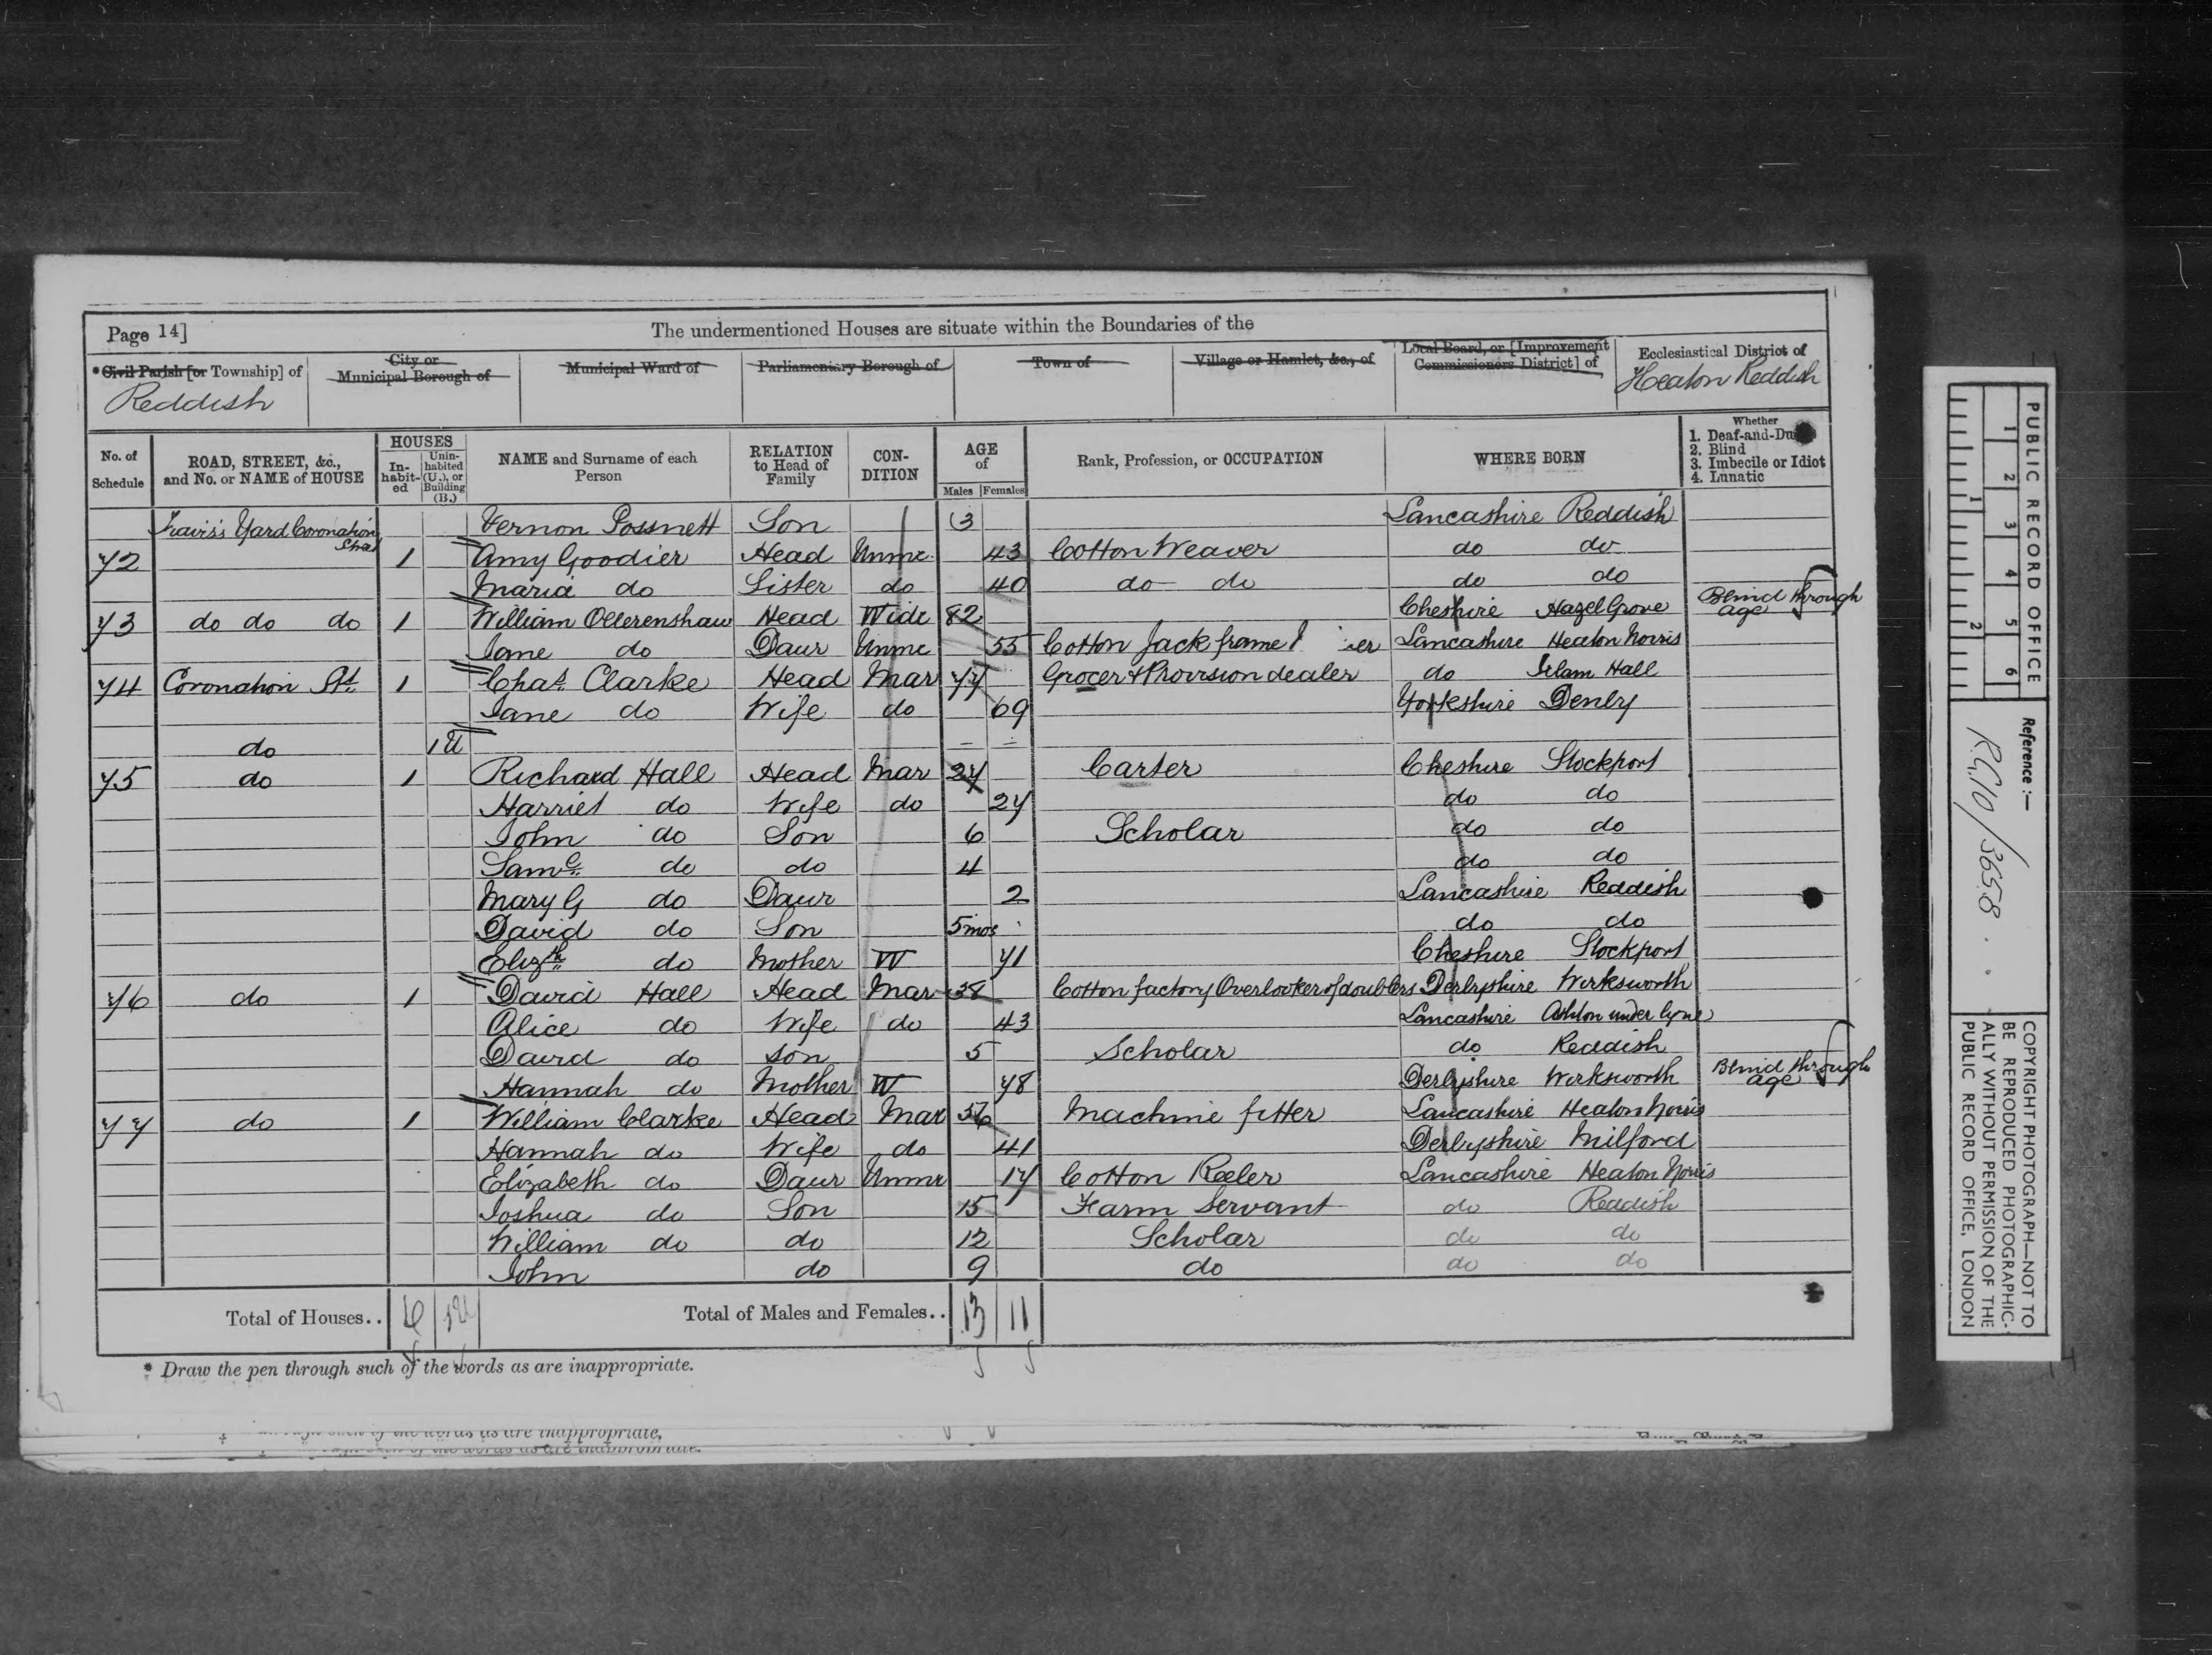 Page 14]
The undermentioned Houses are situate within the Boundaries of the
*Civil Parish [or Township] of
Reddish
City or Municipal Borough of
Municipal Ward of
Parliamentary Borough of
Town of
Village or Hamlet, &c., of
Local Board, or [Improvement Commissioners District] of
Ecclesiastical District of
Heaton Reddish
No. of Schedule
ROAD, STREET, &c., and No. or NAME of HOUSE
HOUSES
In-habit-ed
Unin-habited (U.), or Building (B.)
NAME and Surname of each Person
RELATION to Head of Family
CON-DITION
AGE of
Males Females
Rank, Profession, or OCCUPATION
WHERE BORN
Whether
1. Deaf-and-Du
2. Blind
3. Imbecile or Idiot
4. Lunatic
Travis's Yard Coronation Vernon Possnett Son 3 Lancashire Reddish
72 1 Amy Goodier Head Unmr 43 Cotton Weaver do do
Maria do Sister do 40 do do do do
73 do do do 1 William Ollerenshaw Head Widr 82 Cheshire Hazel Grove Blind through age
Jane do Daur Unmr 55 Cotton Jack frame Lancashire Heaton Norris
74 Coronation St 1 Chas Clarke Head Mar 77 Grocer & Provision dealer do Hall
Jane do Wife do 69 Yorkshire Denby
do 1 U
75 do 1 Richard Hall Head Mar 27 Carter Cheshire Stockport
Harriet do Wife do 27 do do
John do Son 6 Scholar do do
Saml do do 4 do do
Mary G do Daur 2 Lancashire Reddish
David do Son 5 mos do do
Elizth do Mother W 71 Cheshire Stockport
76 do 1 David Hall Head Mar 38 Cotton factory Overlooker of doublers Derbyshire Wirksworth
Alice do Wife do 43 Lancashire Ashton under lyne
David do Son 5 Scholar do Reddish
Hannah do Mother W 78 Derbyshire Wirksworth Blind through age
77 do 1 William Clarke Head Mar 56 Machine fitter Lancashire Heaton Norris
Hannah do Wife do 41 Derbyshire Milford
Elizabeth do Daur Unmr 17 Cotton Reeler Lancashire Heaton Norris
Joshua do Son 15 Farm Servant do Reddish
William do do 12 Scholar do do
John do 9 do do do
Total of Houses.. 6 1U
Total of Males and Females.. 13 11
* Draw the pen through such of the words as are inappropriate.
PUBLIC RECORD OFFICE
1 2 3 4 5 6
1 2
Reference :—
R.G.10/3658
COPYRIGHT PHOTOGRAPH—NOT TO BE REPRODUCED PHOTOGRAPHIC-ALLY WITHOUT PERMISSION OF THE PUBLIC RECORD OFFICE, LONDON